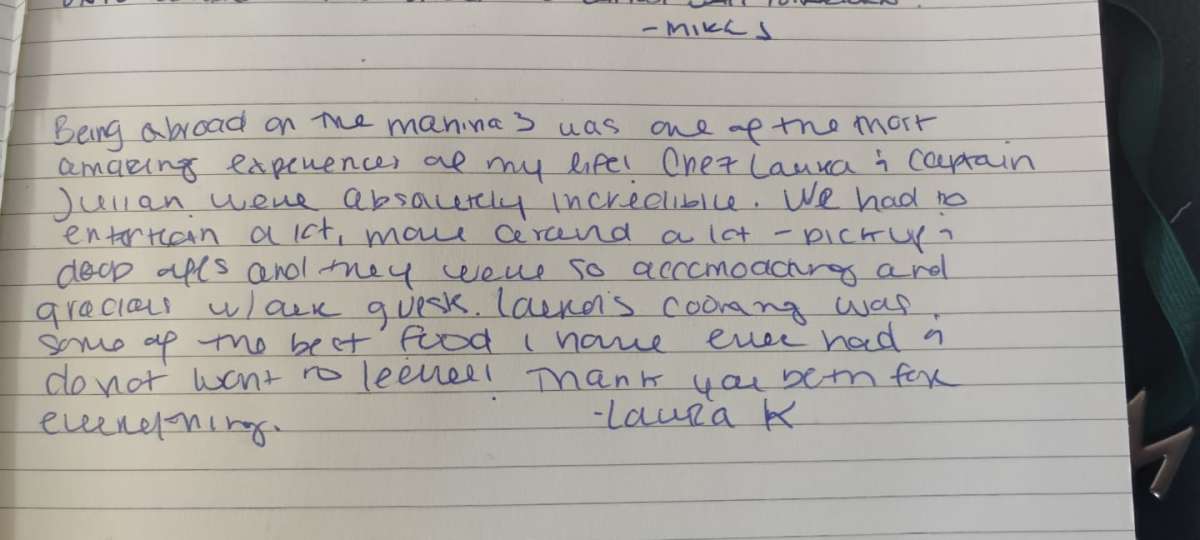 -Mike S
Being abroad on the manina 3 was one of the most
amazing experiences of my life! Chef Laura & Captain
Julian were absolutely incredible. We had to
entertain a lot, move around a lot - pickup &
drop offs and they were so accomodating and
gracious w/our guests. Laura's cooking was
some of the best food I have ever had &
do not want to leave! Thank you both for
everything. -Laura K